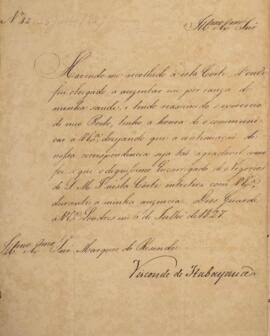 Illmo. Exmo. Snr.
Havendo me recolhido á esta Corte, d'onde
fui obrigado a ausentar me por cauza de
minha saude, e tendo reassumido o exercicio
do meu Posto, tenho a honra de o communi-
car a V. Exa. desejando que a continuação da
nossa correspondencia seja tão agradavel como
foi a que o digníssimo Encarregado de Negocios
de S. M. I. nesta Corte entreteve com V. Exa.
durante a minha auzencia. Deos Guarde
a V. Exa. Londres em 5 de Julho de 1827.
Illmo. Exmo. Snr. Marquez de Resende
Visconde de Itabayana